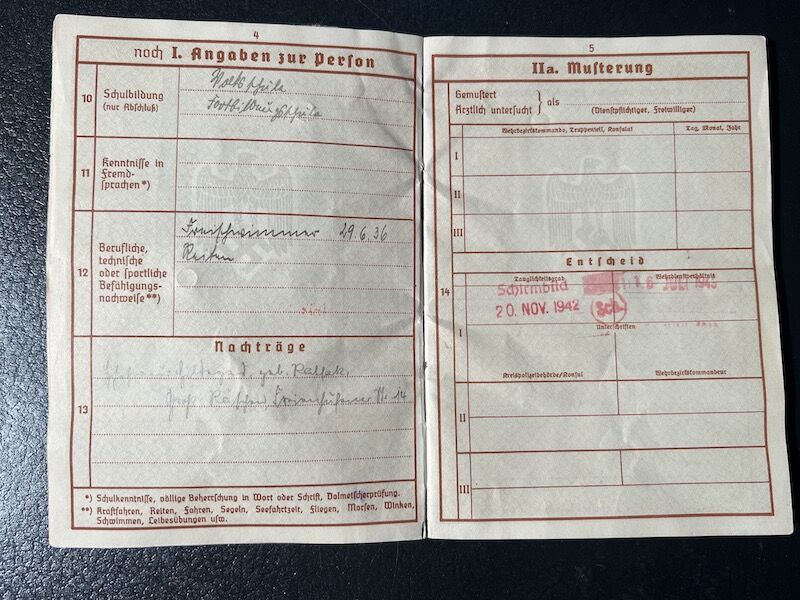 4
noch I. Angaben zur Person
10
Schulbildung
(nur Abschluß)
Volksschule
Fortbildungsschule
11
Kenntnisse in
Fremd-
sprachen*)
12
Berufliche,
technische
oder sportliche
Befähigungs-
nachweise**)
Freischwimmer 29.6.36
Reiten
Nachträge
13
geb.
Groß Räschen Nr. 14
*) Schulkenntnisse, völlige Beherrschung in Wort oder Schrift, Dolmetscherprüfung.
**) Kraftfahren, Reiten, Fahren, Segeln, Seefahrtzeit, Fliegen, Morsen, Winken,
Schwimmen, Leibesübungen usw.
5
IIa. Musterung
Gemustert
Ärztlich untersucht } als
(Dienstpflichtiger, Freiwilliger)
Wehrbezirkskommando, Truppenteil, Konsulat
Tag, Monat, Jahr
I
II
III
Entscheid
14
Tauglichkeitsgrad
Wehrdienstverhältnis
Schirmbild
20. NOV. 1942
Sch.
JULI 1943
I
Unterschriften
Kreispolizeibehörde/Konsul
Wehrbezirkskommandeur
II
III